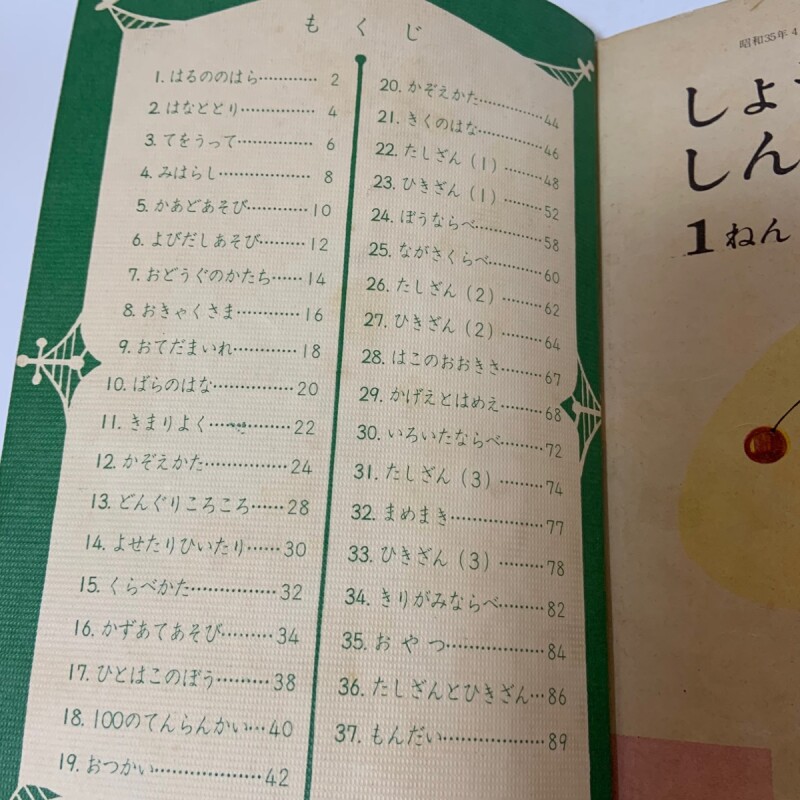 もくじ
1. はるののはら………… 2
2. はなととり………… 4
3. てをうって………… 6
4. みはらし………… 8
5. かあどあそび…………10
6. よびだしあそび…………12
7. おどうぐのかたち……14
8. おきゃくさま…………16
9. おてだまいれ…………18
10. ばらのはな…………20
11. きまりよく…………22
12. かぞえかた…………24
13. どんぐりころころ……28
14. よせたりひいたり……30
15. くらべかた…………32
16. かずあてあそび………34
17. ひとはこのぼう………38
18. 100のてんらんかい…40
19. おつかい…………42
20. かぞえかた…………44
21. きくのはな…………46
22. たしざん（1）………48
23. ひきざん（1）………52
24. ぼうならべ…………58
25. ながさくらべ………60
26. たしざん（2）………62
27. ひきざん（2）………64
28. はこのおおきさ………67
29. かげえとはめえ………68
30. いろいたならべ………72
31. たしざん（3）………74
32. まめまき…………77
33. ひきざん（3）………78
34. きりがみならべ………82
35. おやつ…………84
36. たしざんとひきざん…86
37. もんだい…………89
昭和35年4
しょ
しん
1ねん